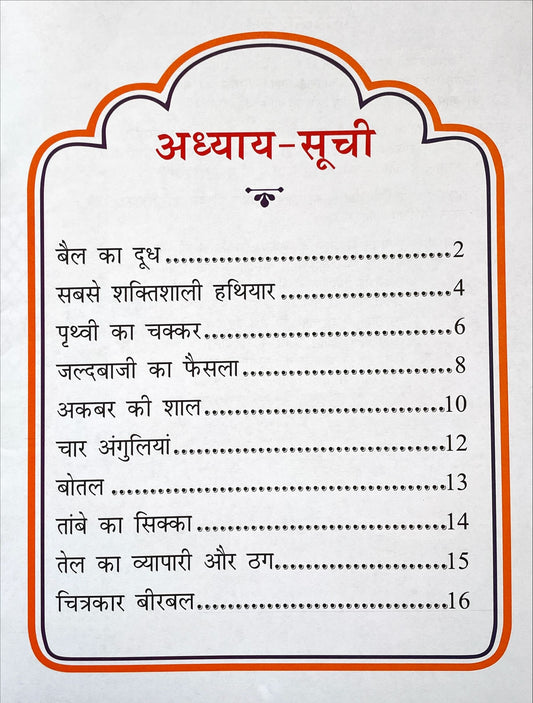 अध्याय-सूची
बैल का दूध........................................2
सबसे शक्तिशाली हथियार........................4
पृथ्वी का चक्कर...................................6
जल्दबाजी का फैसला..............................8
अकबर की शाल..................................10
चार अंगुलियां......................................12
बोतल...............................................13
तांबे का सिक्का...................................14
तेल का व्यापारी और ठग........................15
चित्रकार बीरबल...................................16